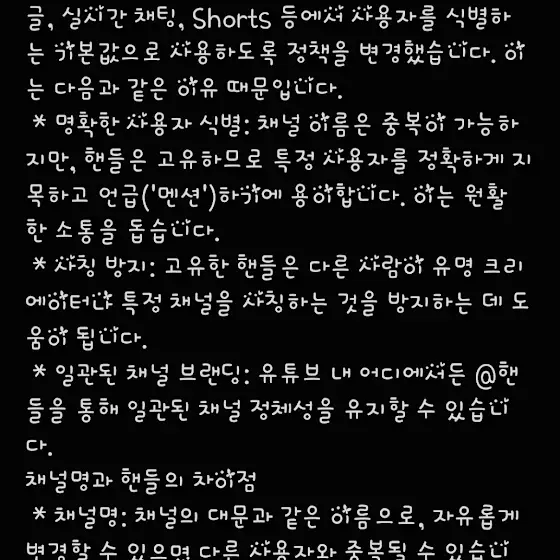 글, 실시간 채팅, Shorts 등에서 사용자를 식별하
는 기본값으로 사용하도록 정책을 변경했습니다. 이
는 다음과 같은 이유 때문입니다.
* 명확한 사용자 식별: 채널 이름은 중복이 가능하
지만, 핸들은 고유하므로 특정 사용자를 정확하게 지
목하고 언급('멘션')하기에 용이합니다. 이는 원활
한 소통을 돕습니다.
* 사칭 방지: 고유한 핸들은 다른 사람이 유명 크리
에이터나 특정 채널을 사칭하는 것을 방지하는 데 도
움이 됩니다.
* 일관된 채널 브랜딩: 유튜브 내 어디에서든 @핸
들을 통해 일관된 채널 정체성을 유지할 수 있습니
다.
채널명과 핸들의 차이점
* 채널명: 채널의 대문과 같은 이름으로, 자유롭게
변경할 수 있으며 다른 사용자와 중복될 수 있습니